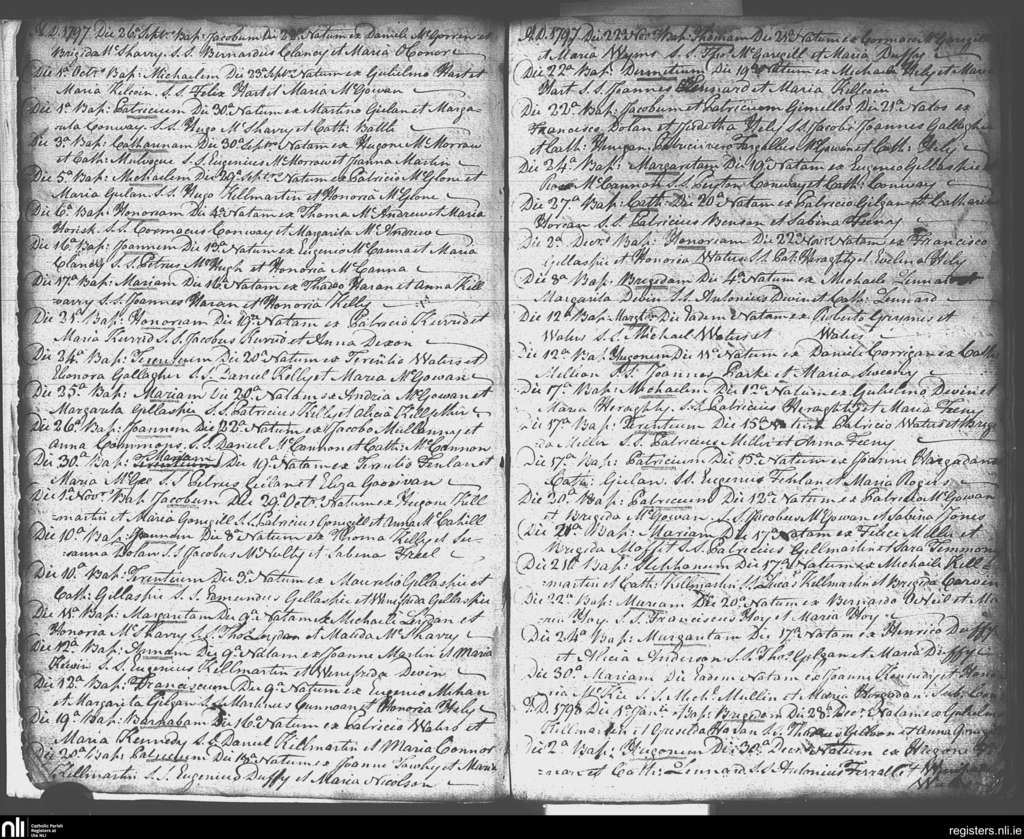 A.D. 1797. Die 26a Septr Bap: Jacobum Die 24a Natum ex Daniele McGorrin et
Brigida McSharry. S.S. Bernardus Clancy et Maria O'Conore
Die 1a Octr Bap: Michaelem Die 23a Sepr Natum ex Gulielmo Hart et
Maria Kilcoin. S.S. Felix Hart et Maria McGowan
Die 1a Bap: Patricium Die 30a Natum ex Martino Gielan et Marga-
rita Conway. S.S. Hugo McSharry et Cath: Battle
Die 3a Bap: Catharinam Die 30a Septr Natam ex Hugone McMorrow
et Cath: Mulvogue S.S. Eugenius McMorrow et Joanna Martin
Die 5a Bap: Michaelem Die 29a Septr Natum ex Patricio McGlone et
Maria Gielan S.S. Hugo Killmartin et Honoria McGlone
Die 6a Bap: Honoriam Die 4a Natam ex Thoma McAndrew et Maria
S.S. Cormacus Conway et Margarita McAndrew
Die 16a Bap: Joannem Die 13a Natum ex Eugenio McCanna et Maria
Clancy S.S. Petrus McHugh et Honoria McCanna
Die 17a Bap: Mariam Die 16a Natam ex Thadeo Haran et Anna Kill
warry S.S. Joannes Haran et Honoria Kelly
Die 21a Bap: Honoriam Die 19a Natam ex Patricio Kerrid et
Maria Kerrid S.S. Jacobus Kerrid et Anna Dixon
Die 24a Bap: Terentium Die 20a Natum ex Terentio Waters et
Elenora Gallagher S.S. Daniel Kelly et Maria McGowan
Die 25a Bap: Mariam Die 20a Natam ex Andria McGowan et
Margarita Gillaspie S.S. Patricius Kelly et Alicia
Die 26a Bap: Joannem Die 22a Natum ex Jacobo Mullanny et
Anna Commons S.S. Daniel McCannon et Cath: McCannon
Die 30a Bap: Mariam Die 19a Natam ex Terentio Fenlan et
Maria McGee S.S. Petrus Gielan et Eliza Goorivan
Die 1a Novr Bap: Jacobum Die 29a Octr Natum ex Hugone Kill
-martin et Maria Gonigill S.S. Patricius Gonigill et Anna McCahill
Die 10a Bap: Joannem Die 8a Natum ex Thoma Kelly et Su-
sanna Dolan S.S. Jacobus McNulty et Sabina Freel
Die 10a Bap: Terentium Die 3a Natum ex Mauritio Gillaspie et
Cath: Gillaspie S.S. Edmundus Gillaspie et Winefrida Gillaspie
Die 11a Bap: Margaritam Die 9a Natam ex Michaele Leydan et
Honoria McSharry S.S. Tho: Leydan et Mauda McSharry
Die 12a Bap: Annam Die 9a Natam ex Joanne Martin et Maria
Kilcoin S.S. Eugenius Killmartin et Winefrida Devin
Die 12a Bap: Franciscum Die 9a Natum ex Eugenio Mihan
et Margarita Gilgan S.S. Martinus Gunnoan et Honoria Hely
Die 19a Bap: Barnabam Die 16a Natum ex Patricio Waters et
Maria Kennedy S.S. Daniel Killmartin et Maria Connor
Die 20a Bap: Patricium Die 18a Natum ex Joanne et Maria
Killmartin S.S. Eugenius Duffy et Maria Nicolson
A.D. 1797 Die 22a Novr Bap: Thomam Die 21a Natum ex Cormaco McGargill
et Maria Wynns S.S. Tho: McGargill et Maria Duffy
Die 22a Bap: Dermitium Die 19a Natum ex Michaele Hely et Maria
Hart S.S. Joannes Kennard et Maria Kellcoin
Die 22a Bap: Jacobum et Patricium Gimellos Die 21a Natos ex
Francisco Dolan et Juditha Hely S.S. Jacobi Joannes Gallagher
et Cath: Hengan, Patricii vero Fargallus McGowan et Cath: Hely
Die 24a Bap: Margaretam Die 19a Natam ex Eugenio Gillaspie
McCannon S.S. Conway et Cath: Conway
Die 27a Bap: Cath: Die 20a Natam ex Patricio Gilgan et Catharina
Horan S.S. Patricius Benson et Sabina Feeny
Die 2a Decr Bap: Honoriam Die 22a Novr Natam ex Francisco
Gillaspie et Honoria Waters S.S. Pat: Heraghty et Evelina Hely
Die 8a Bap: Brigidam Die 4a Natam ex Michaele Lennard
Margarita Devin S.S. Antonius Devin et Cath: Lennard
Die 12a Bap: Margtam Die Eadem Natam ex Roberto Grymes et
Waters S.S. Michael Waters et Waters
Die 12a Bap: Hugonem Die 11a Natum ex Daniele Corrigan ex Cath:
Mellian S.S. Joannes Parke et Maria Sweeny
Die 17a Bap: Michaelem Die 12a Natum ex Gulielmo Devin et
Maria Heraghty. S.S. Patricius Heraghty et Maria Feeny
Die 17a Bap: Terentium Die 15a Natum Patricio Waters et Brigi
da Miller S.S. Patricius Miller et Anna Feeny
Die 17a Bap: Patricium Die 15a Natum ex Joanne Hargadan et
Cath: Gielan. S.S. Eugenius Fehilan et Maria Rogers
Die 20a Bap: Patricium Die 12a Natum ex Patricio McGowan
et Brigida McGowan S.S. Jacobus McGowan et Sabina Jones
Die 21a Bap: Mariam Die 17a Natam ex Felice Mellin et
Brigida Moffit S.S. Patricius Gillmartin et Sara Timmons
Die 21a Bap: Stephanum Die 17a Natum ex Michaele Kill
martin et Cath: Killmartin S.S. Killmartin et Brigida Carvin
Die 22a Bap: Mariam Die 20a Natam ex Bernardo O'Neil et Ma
ria Hoy. S.S. Franciscus Hoy et Maria Hoy
Die 24a Bap: Margaritam Die 17a Natam ex Henrico Duffy
et Alicia Anderson S.S. Tho: Gilgan et Maria Duffy
Die 30a Mariam Die Eadem Natam ex Joanne Kennedy et Hono
ria McKee S.S. Mich: Mullin et Maria Hargedan: Sub: Con:
A.D. 1798 Die 1a Janii Bap: Brigidam Die 28a Decr Natam ex Gulielmo
Killmartin et Greselda S.S. Thadeus Gilhon et Anna
Die 2a Bap: Hugonem Die 30a Decr Natum ex Hugone
et Cath: Lennard S.S. Antonius Ferrall et
nli
Catholic Parish
Registers at
the NLI
registers.nli.ie